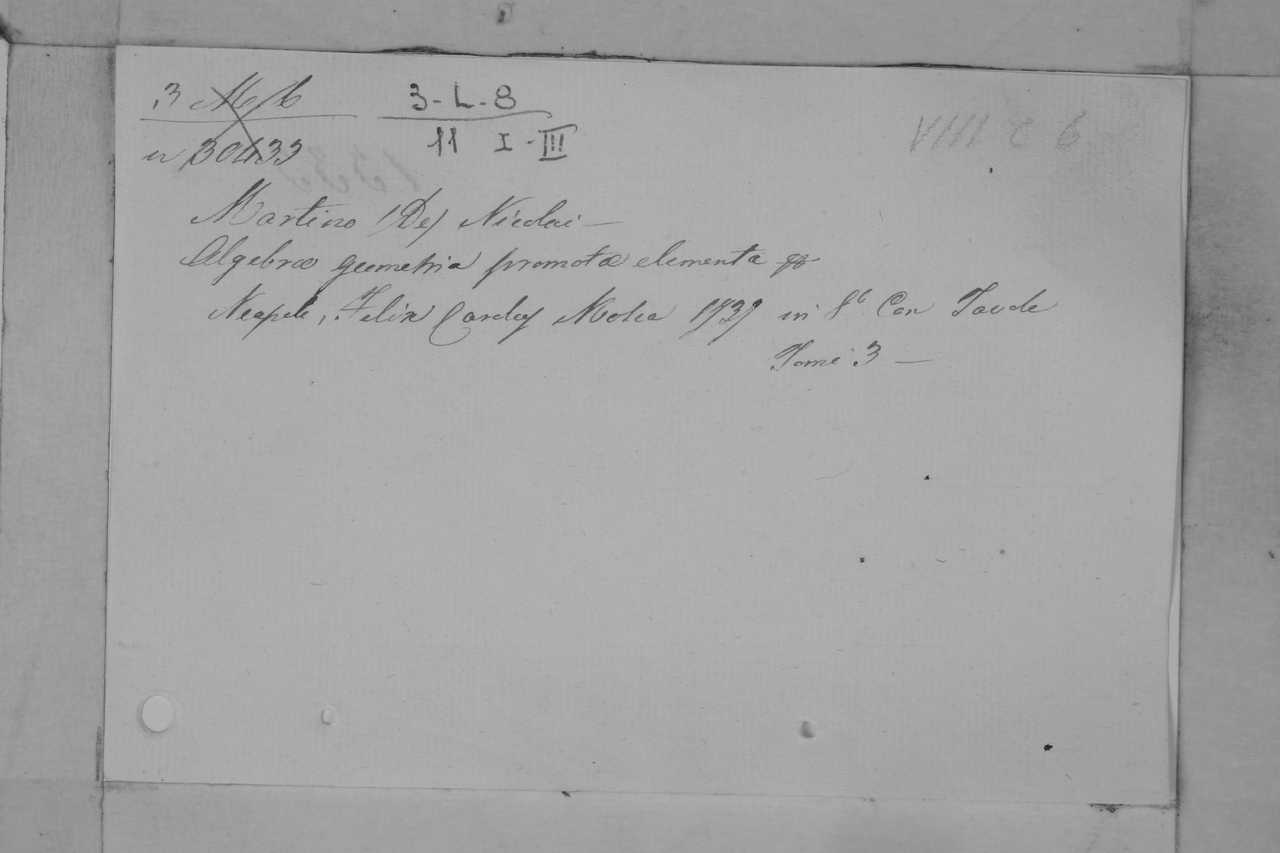 3 M 6
3-L-8
n 30433
11 I-III
VIII C 6
Martino (De) Nicolai —
Algebræ geometria promotæ elementa
Neapoli, Felix Mosca 1737 in 8° Con Tavole
Tomi 3 —